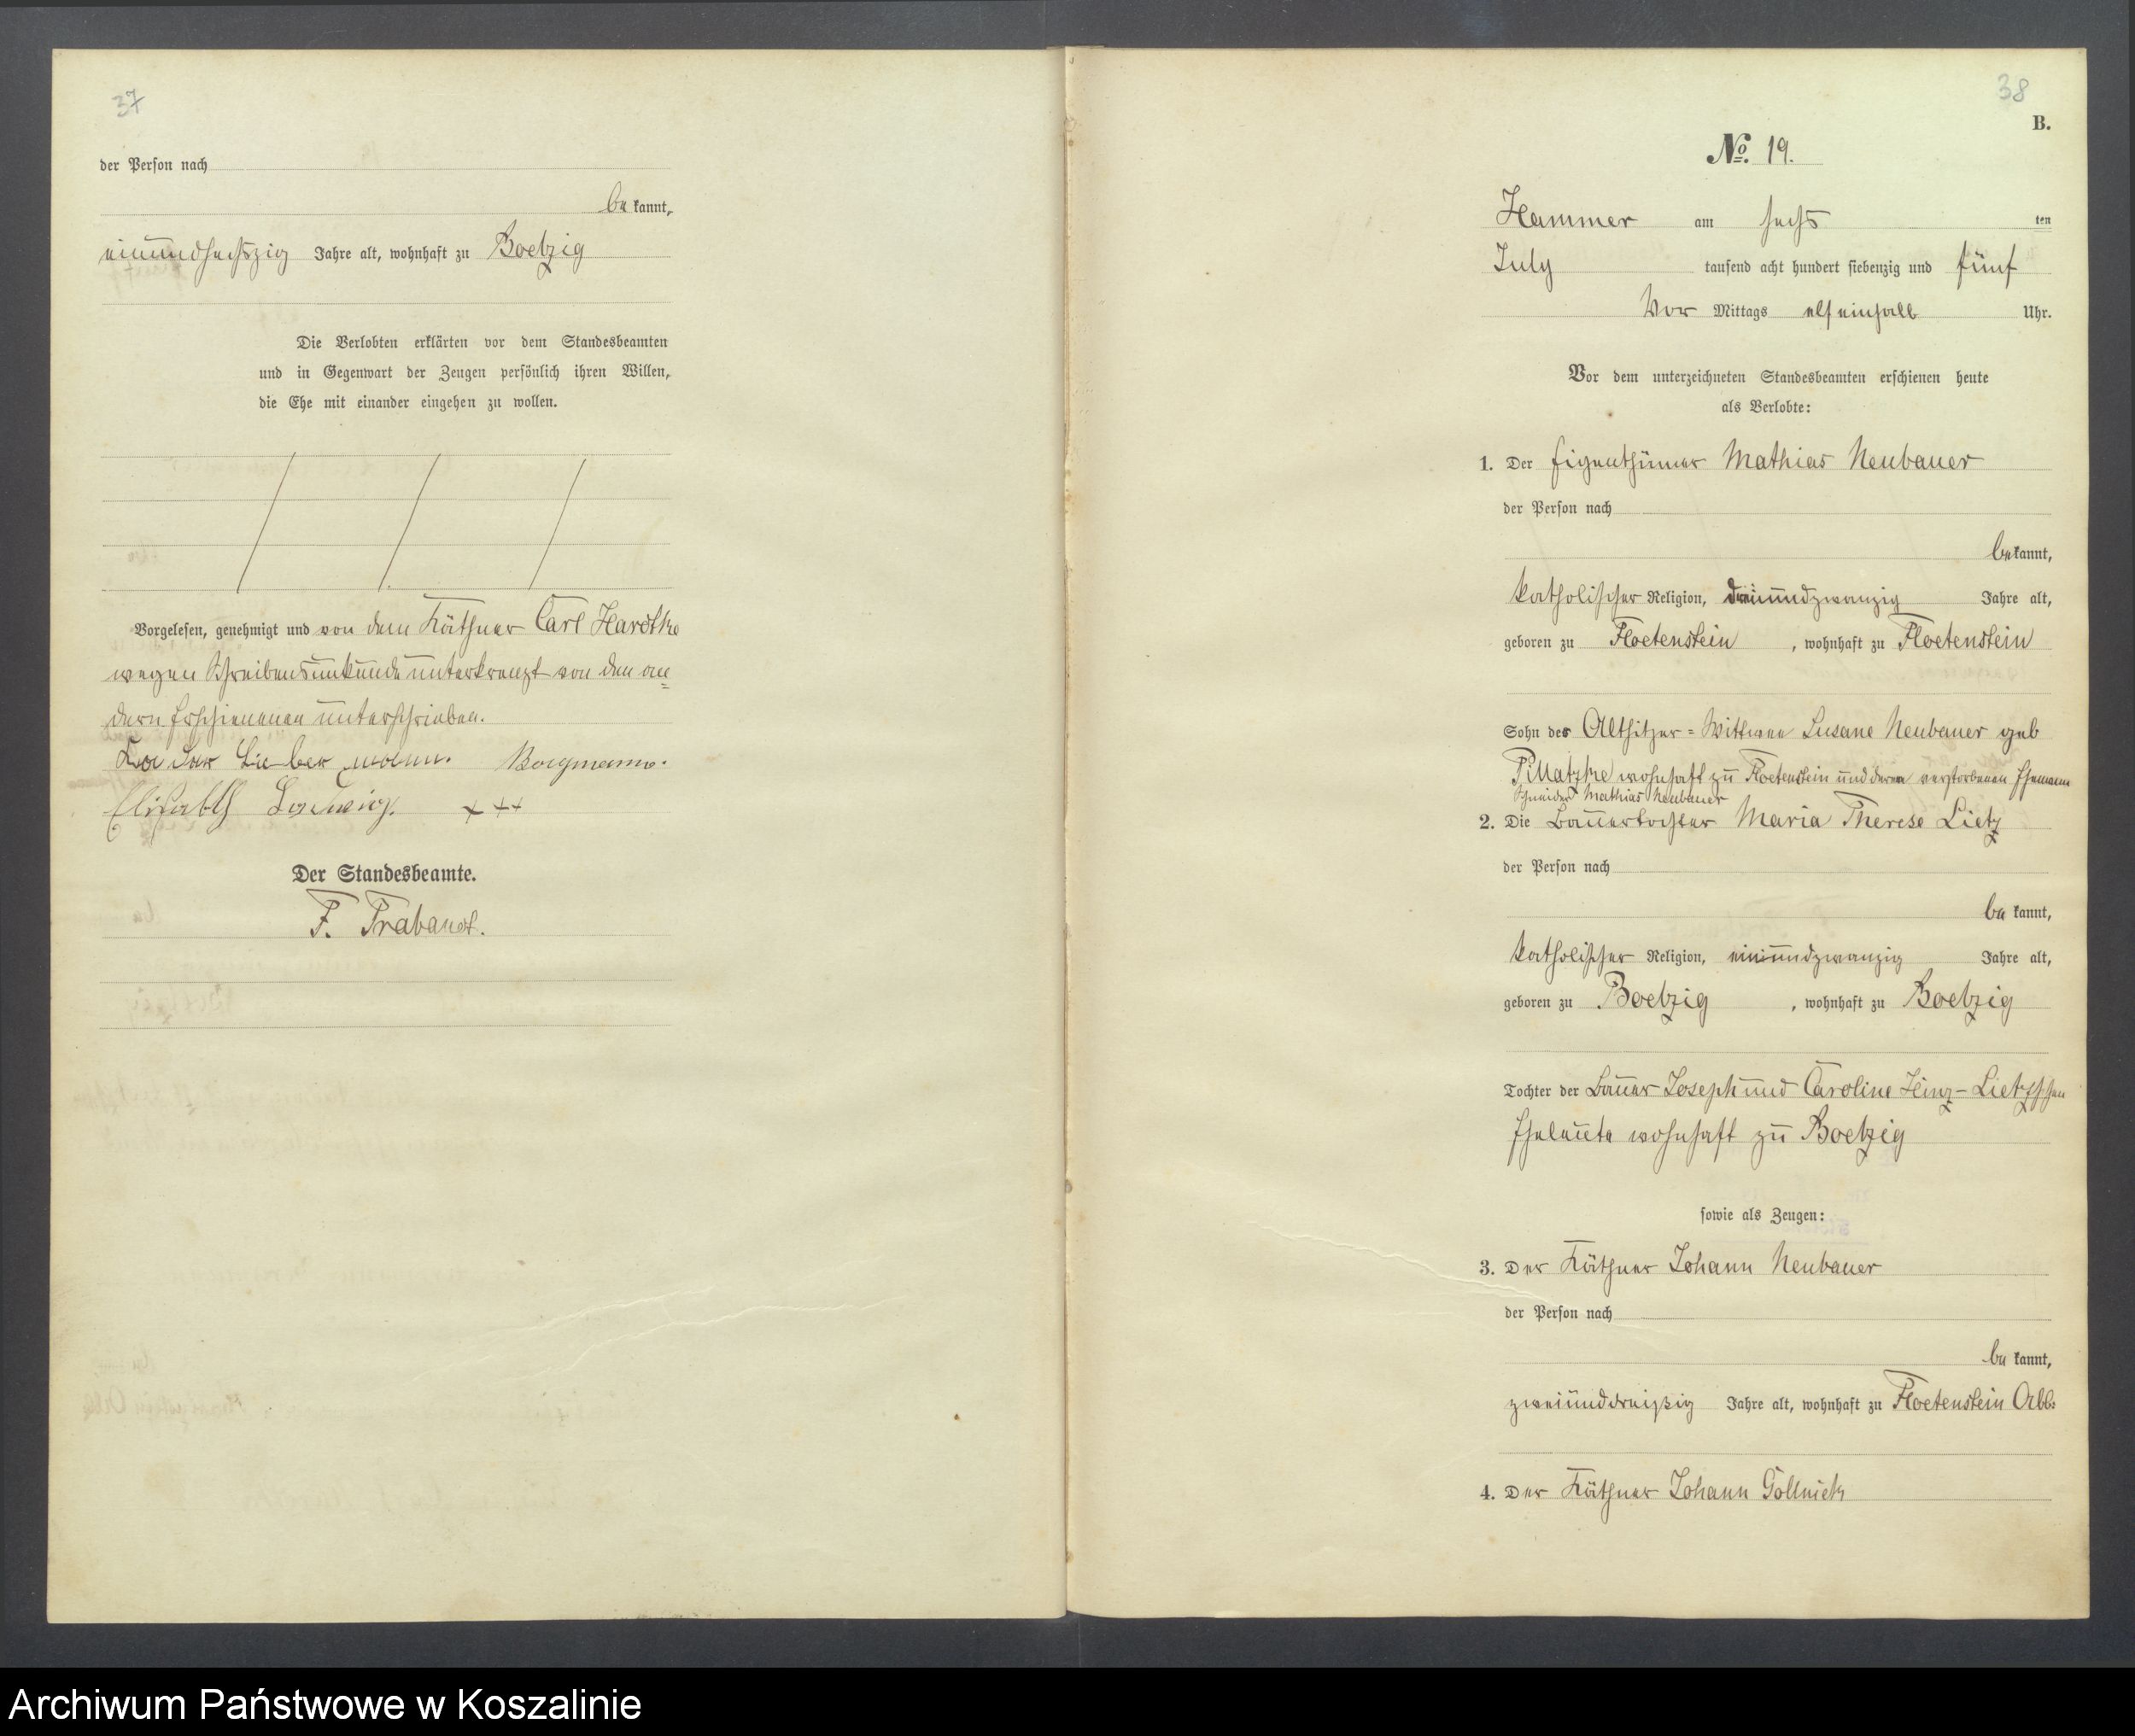 37
der Person nach
bekannt,
einundsechszig Jahre alt, wohnhaft zu Boetzig
Die Verlobten erklärten vor dem Standesbeamten
und in Gegenwart der Zeugen persönlich ihren Willen,
die Ehe mit einander eingehen zu wollen.
Vorgelesen, genehmigt und von dem Käthner Carl Hardtke
wegen Schreibensunkunde unterkreuzt von den an=
dern Erschienenen unterschrieben.
Lieber mann. Borgmann.
Elisabth Ladwig. +++
Der Standesbeamte.
F. Trabandt.
38
B.
No. 19.
Hammer am sechs ten
July tausend acht hundert siebenzig und fünf
Vor Mittags elf einhalb Uhr.
Vor dem unterzeichneten Standesbeamten erschienen heute
als Verlobte:
1. Der Eigenthümer Mathias Neubauer
der Person nach
bekannt,
katholischer Religion, dreiundzwanzig Jahre alt,
geboren zu Floetenstein, wohnhaft zu Floetenstein
Sohn der Altsitzer=Wittwee Susane Neubauer geb
Pillatzke wohnhaft zu Floetenstein und deren verstorbenen Ehemann
Schneider Mathias Neubauer
2. Die Bauertochter Maria Therese Lietz
der Person nach
bekannt,
katholischer Religion, einundzwanzig Jahre alt,
geboren zu Boetzig, wohnhaft zu Boetzig
Tochter der Bauer Joseph und Caroline Hinz-Lietzschen
Eheleute wohnhaft zu Boetzig
sowie als Zeugen:
3. Der Käthner Johann Neubauer
der Person nach
bekannt,
zweiunddreißig Jahre alt, wohnhaft zu Floetenstein Abb.
4. Der Käthner Johann Gollnick
Archiwum Państwowe w Koszalinie